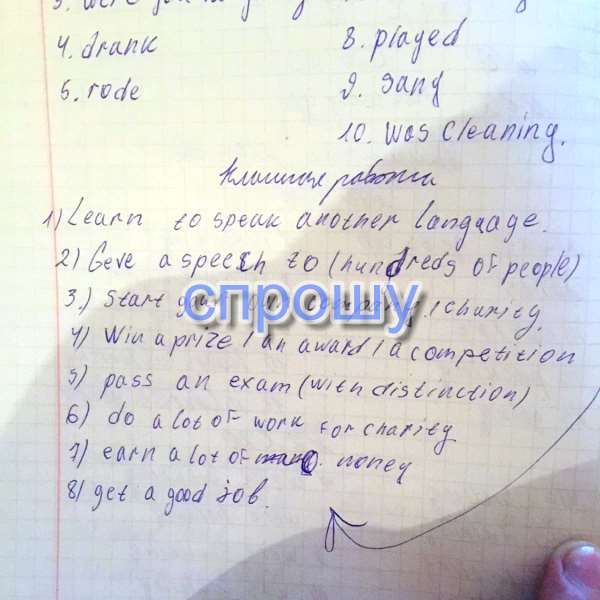 4. drank
8. played
5. rode
9. sang
10. was cleaning.
Классная работа
1) Learn to speak another language.
2) Geve a speech to (hundreds of people)
спрошу
3.) Start your own company / charity.
4) Win a prize / an award / a competition
5) pass an exam (with distinction)
6) do a lot of work for charity
7) earn a lot of noney
8) get a good job.